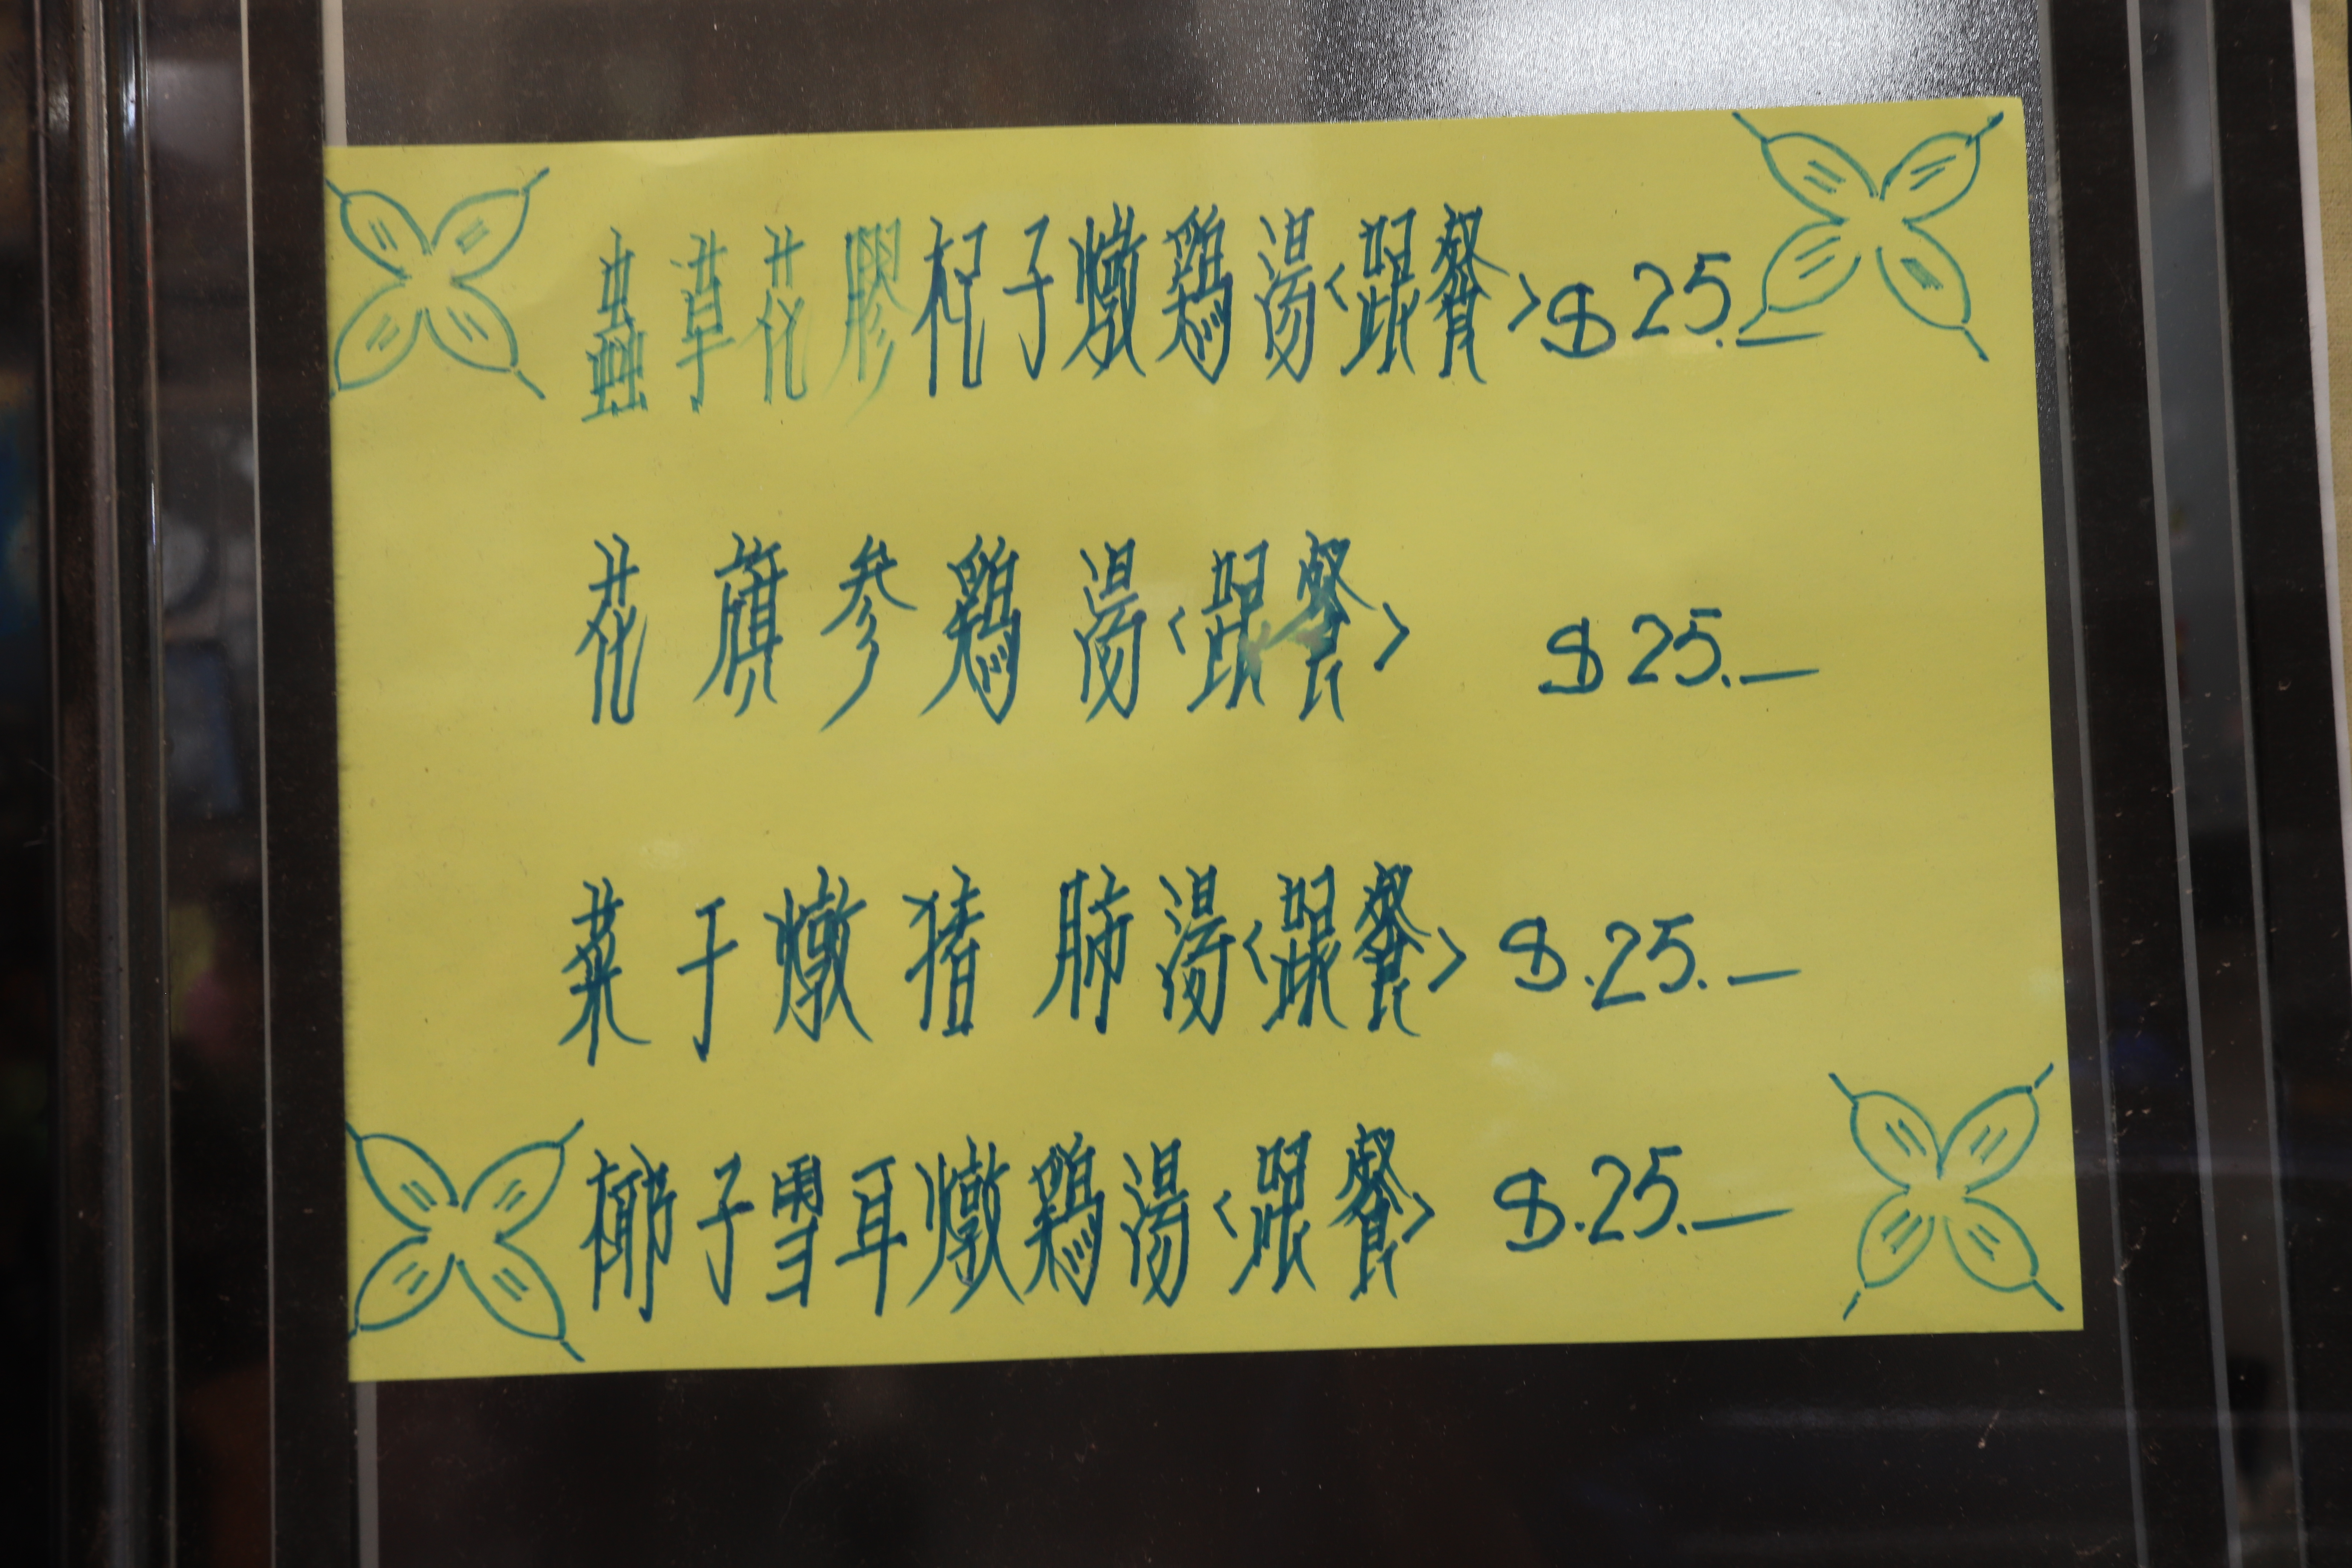 蟲草花膠杞子燉鷄湯<跟餐>$25.—
花旗参鷄湯<跟餐> $25.—
菜干燉猪肺湯<跟餐>$.25.—
椰子雪耳燉鷄湯<跟餐> $.25.—